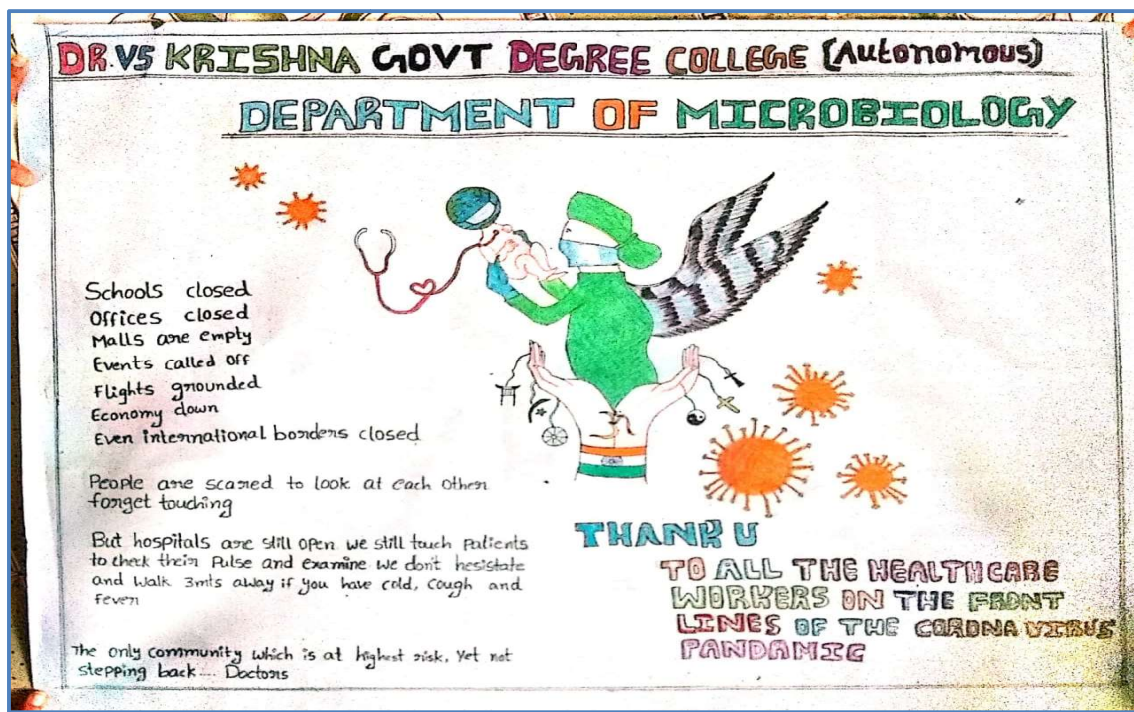 DR.VS KRISHNA GOVT DEGREE COLLEGE (Autonomous)
DEPARTMENT OF MICROBIOLOGY
Schools closed
Offices closed
Malls are empty
Events called off
Flights grounded
Economy down
Even international borders closed
People are scared to look at each other
forget touching
But hospitals are still open we still touch Patients
to check their Pulse and examine we don't hesistate
and walk 3mts away if you have cold, cough and
fever
The only community which is at highest risk, yet not
stepping back.... Doctors
THANK U
TO ALL THE HEALTHCARE
WORKERS ON THE FRONT
LINES OF THE CORONA VIRUS
PANDAMIC